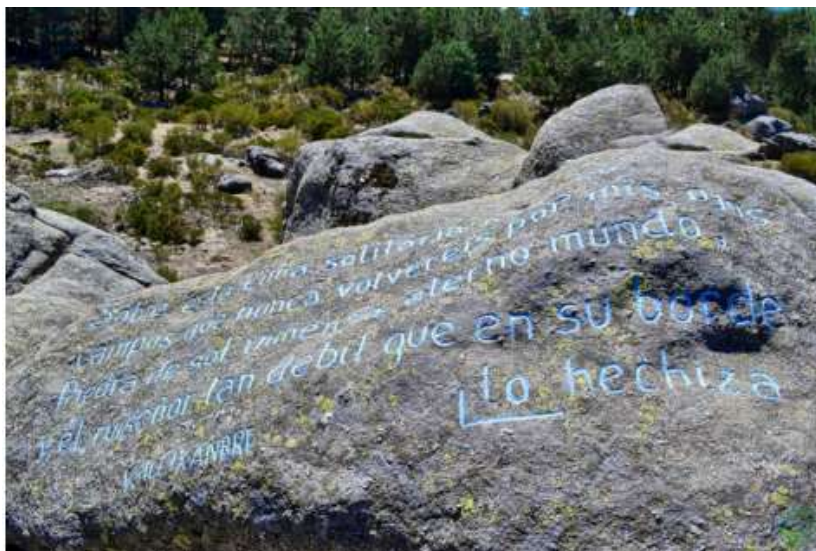 Sobre esta cima solitaria os miro
campos que nunca volveréis por mis ojos
Piedra de sol inmensa eterno mundo,
y el ruiseñor tan debil que en su borde
lo hechiza
V. ALEIXANDRE